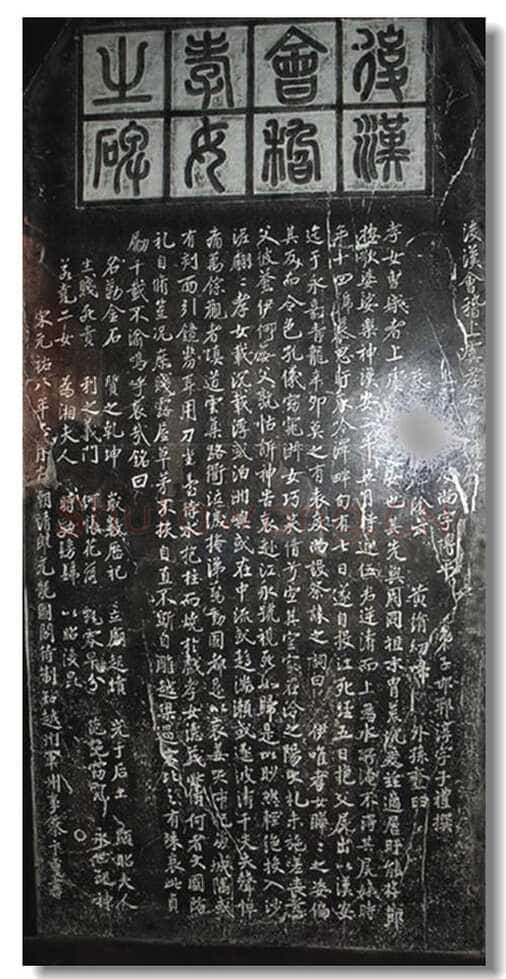 後漢會稽孝女之碑
後漢會稽上虞孝女
尚字博平 弟子邯鄲淳字子禮撰
蔡 云 黃絹幼婦 外孫齏臼
孝女曹娥者上虞 女也其先與周同祖末胄荒沉爰茲適居盱能撫節
按歌婆娑樂神漢安二年五月時迎伍君逆濤而上為水所淹不得其屍娥時
年十四號慕思盱哀吟澤畔旬有七日遂自投江死經五日抱父屍出以漢安
迄于永嘉青龍辛卯莫之有表度尚設祭誄之詞曰 伊唯孝女曄曄之姿偏
其反而令色孔儀窈窕淑女巧笑倩兮宜其室家在洽之陽大禮未施嗟喪蒼
父彼蒼伊何無父孰怙訴神告哀赴江永號視死如歸是以眇然輕絕投入沙
泥翩翩孝女載沉載浮或泊洲嶼或在中流或趨湍瀨或逐波濤千夫失聲悼
痛萬餘觀者填道雲集路衢泣淚掩涕驚動國都是以哀姜哭市杞崩城隅或
有剋面引鏡剺耳用刀坐臺待水抱柱而燒於戲孝女德茂此儔何者大國防
禮自脩豈況庶賤露屋草茅不扶自直不斲自雕越梁過宋比之有殊哀此貞
勵千載不渝嗚呼哀哉銘曰
名勒金石 質之乾坤 歲數曆祀 立廟起墳 光于后土 顯昭夫人
生賤死貴 利之義門 何悵花落 飄零早分 葩艷窈窕 永世配神
若堯二女 為湘夫人 時效髣髴 以昭後昆
宋元祐八年 月左朝請郎充龍圖閣待制知越州軍州事蔡卞重書